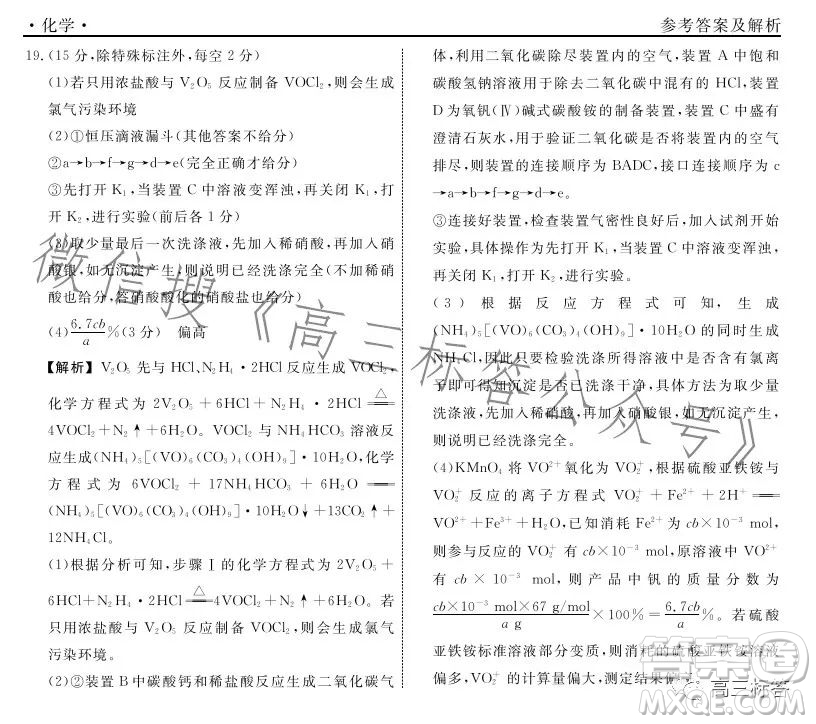 ·化学·
参考答案及解析
19.(15分,除特殊标注外,每空2分)
(1)若只用浓盐酸与V₂O₅反应制备VOCl₂,则会生成
氯气污染环境
(2)①恒压滴液漏斗(其他答案不给分)
②a→b→f→g→d→e(完全正确才给分)
③先打开K₁,当装置C中溶液变浑浊,再关闭K₁,打
开K₂,进行实验(前后各1分)
(3)取少量最后一次洗涤液,先加入稀硝酸,再加入硝
酸银,如无沉淀产生,则说明已经洗涤完全(不加稀硝
酸也给分,答硝酸酸化的硝酸盐也给分)
(4)6.7cb/a%(3分) 偏高
【解析】V₂O₅先与HCl、N₂H₄·2HCl反应生成VOCl₂,
化学方程式为2V₂O₅+6HCl+N₂H₄·2HCl≜
4VOCl₂+N₂↑+6H₂O。VOCl₂与NH₄HCO₃溶液反
应生成(NH₄)₅[(VO)₆(CO₃)₄(OH)₉]·10H₂O,化学
方程式为6VOCl₂+17NH₄HCO₃+6H₂O══
(NH₄)₅[(VO)₆(CO₃)₄(OH)₉]·10H₂O↓+13CO₂↑+
12NH₄Cl。
(1)根据分析可知,步骤Ⅰ的化学方程式为2V₂O₅+
6HCl+N₂H₄·2HCl≜4VOCl₂+N₂↑+6H₂O。若
只用浓盐酸与V₂O₅反应制备VOCl₂,则会生成氯气
污染环境。
(2)②装置B中碳酸钙和稀盐酸反应生成二氧化碳气
体,利用二氧化碳除尽装置内的空气,装置A中饱和
碳酸氢钠溶液用于除去二氧化碳中混有的HCl,装置
D为氧钒(Ⅳ)碱式碳酸铵的制备装置,装置C中盛有
澄清石灰水,用于验证二氧化碳是否将装置内的空气
排尽,则装置的连接顺序为BADC,接口连接顺序为c
→a→b→f→g→d→e。
③连接好装置,检查装置气密性良好后,加入试剂开始
实验,具体操作为先打开K₁,当装置C中溶液变浑浊,
再关闭K₁,打开K₂,进行实验。
(3)根据反应方程式可知,生成
(NH₄)₅[(VO)₆(CO₃)₄(OH)₉]·10H₂O的同时生成
NH₄Cl,因此只要检验洗涤所得溶液中是否含有氯离
子即可得知沉淀是否已经洗涤干净,具体方法为取少量
洗涤液,先加入稀硝酸,再加入硝酸银,如无沉淀产生,
则说明已经洗涤完全。
(4)KMnO₄将VO²⁺氧化为VO₂⁺,根据硫酸亚铁铵与
VO₂⁺反应的离子方程式VO₂⁺+Fe²⁺+2H⁺══
VO²⁺+Fe³⁺+H₂O,已知消耗Fe²⁺为cb×10⁻³ mol,
则参与反应的VO₂⁺有cb×10⁻³ mol,原溶液中VO²⁺
有cb×10⁻³ mol,则产品中钒的质量分数为
cb×10⁻³ mol×67 g/mol/a g×100%=6.7cb/a%。若硫酸
亚铁铵标准溶液部分变质,则消耗的硫酸亚铁铵溶液
偏多,VO₂⁺偏大,测定结果偏高。
微信搜《高三标答公众号》
答案圈
MXQE.COM
高三标答